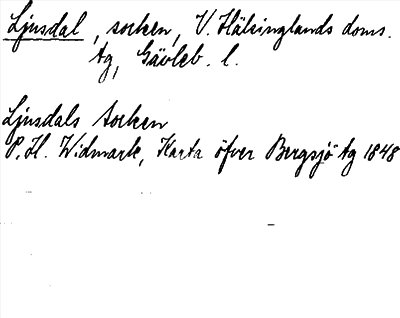 Ljusdal, socken, V. Hälsinglands doms.
tg, Gävleb. l.
Ljusdals Socken
P. H. Widmark, Karta öfver Bergsjö tg 1848